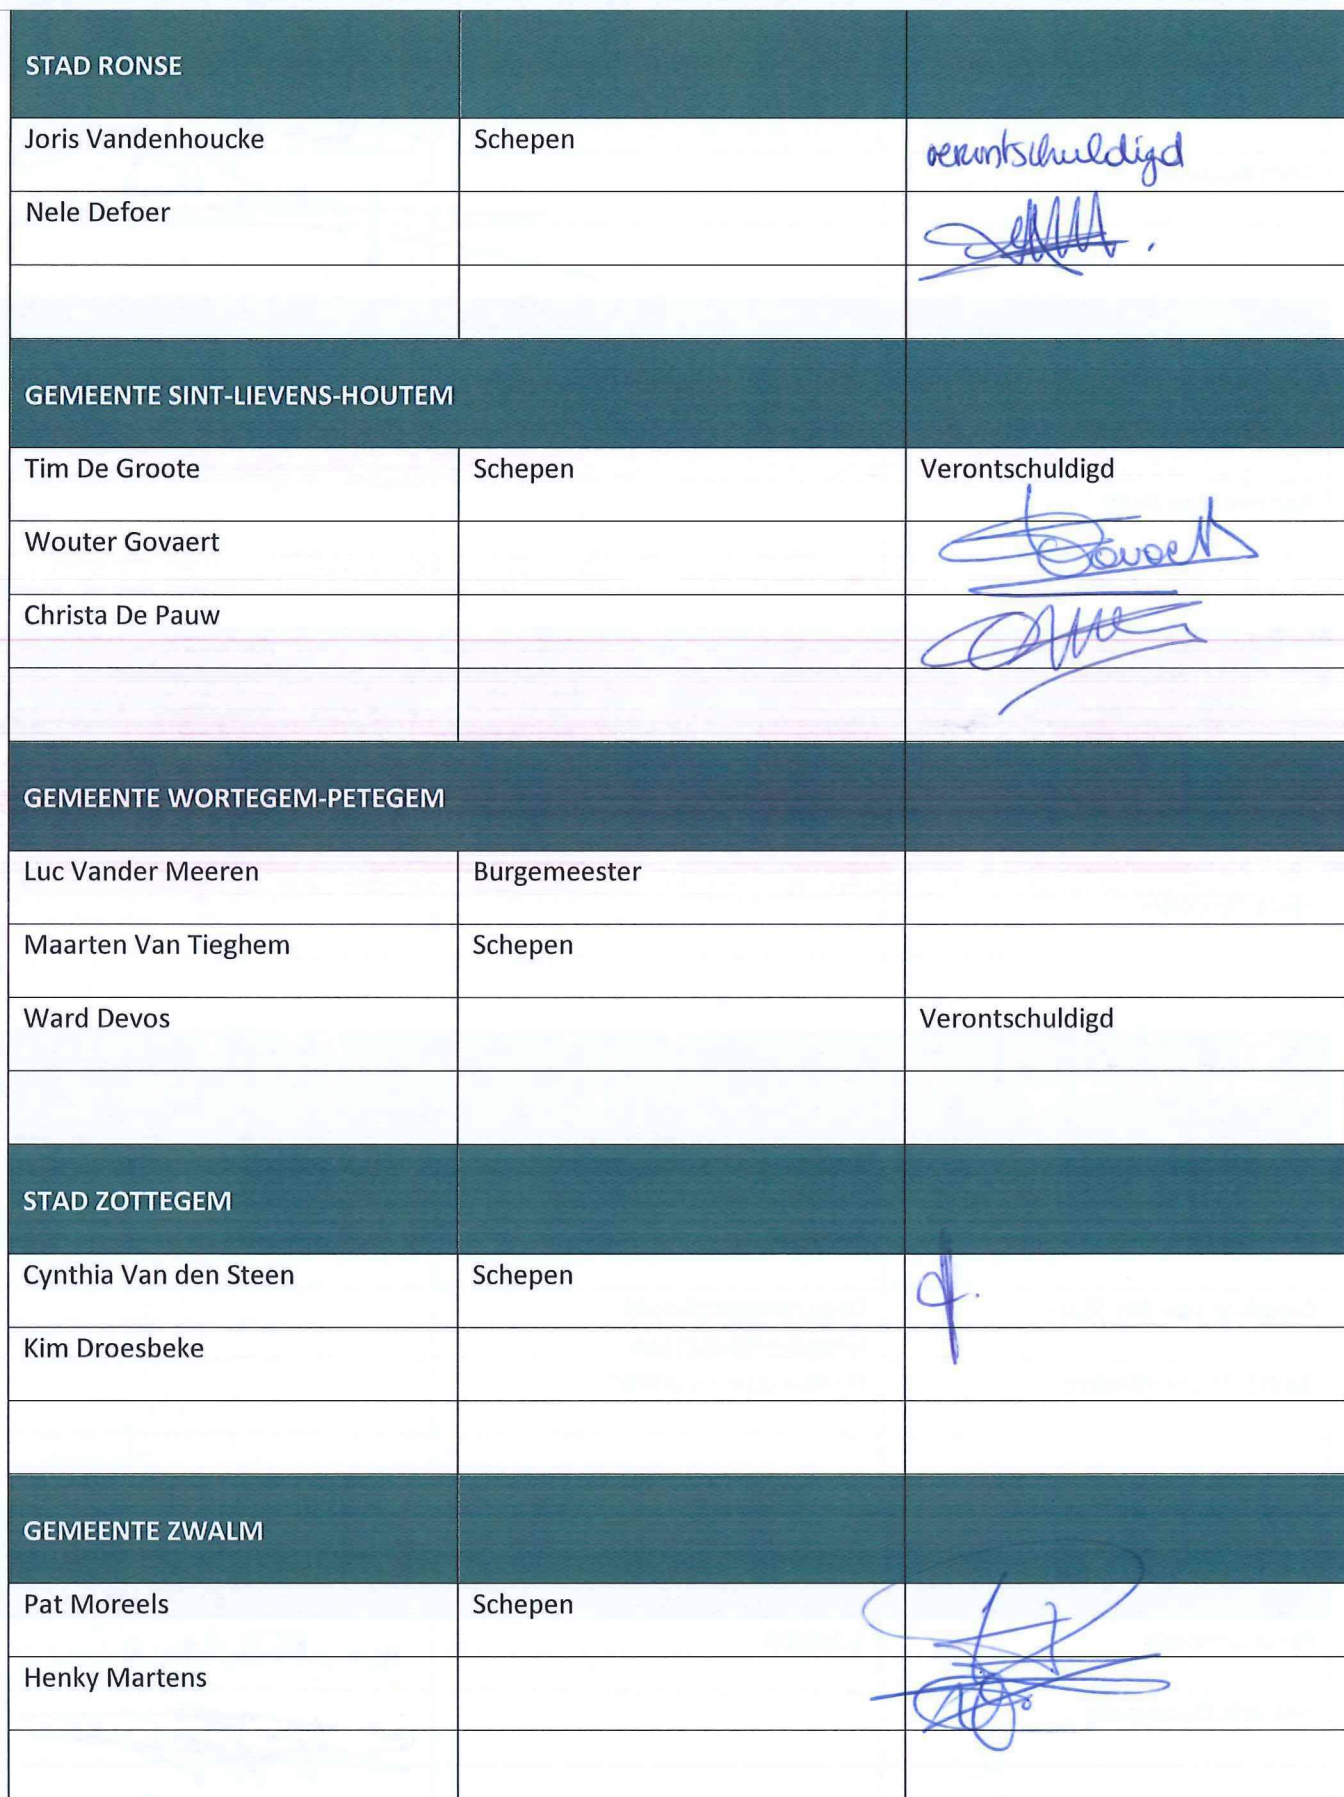 STAD RONSE
Joris Vandenhoucke Schepen verontschuldigd
Nele Defoer
GEMEENTE SINT-LIEVENS-HOUTEM
Tim De Groote Schepen Verontschuldigd
Wouter Govaert Govaert
Christa De Pauw
GEMEENTE WORTEGEM-PETEGEM
Luc Vander Meeren Burgemeester
Maarten Van Tieghem Schepen
Ward Devos Verontschuldigd
STAD ZOTTEGEM
Cynthia Van den Steen Schepen
Kim Droesbeke
GEMEENTE ZWALM
Pat Moreels Schepen
Henky Martens